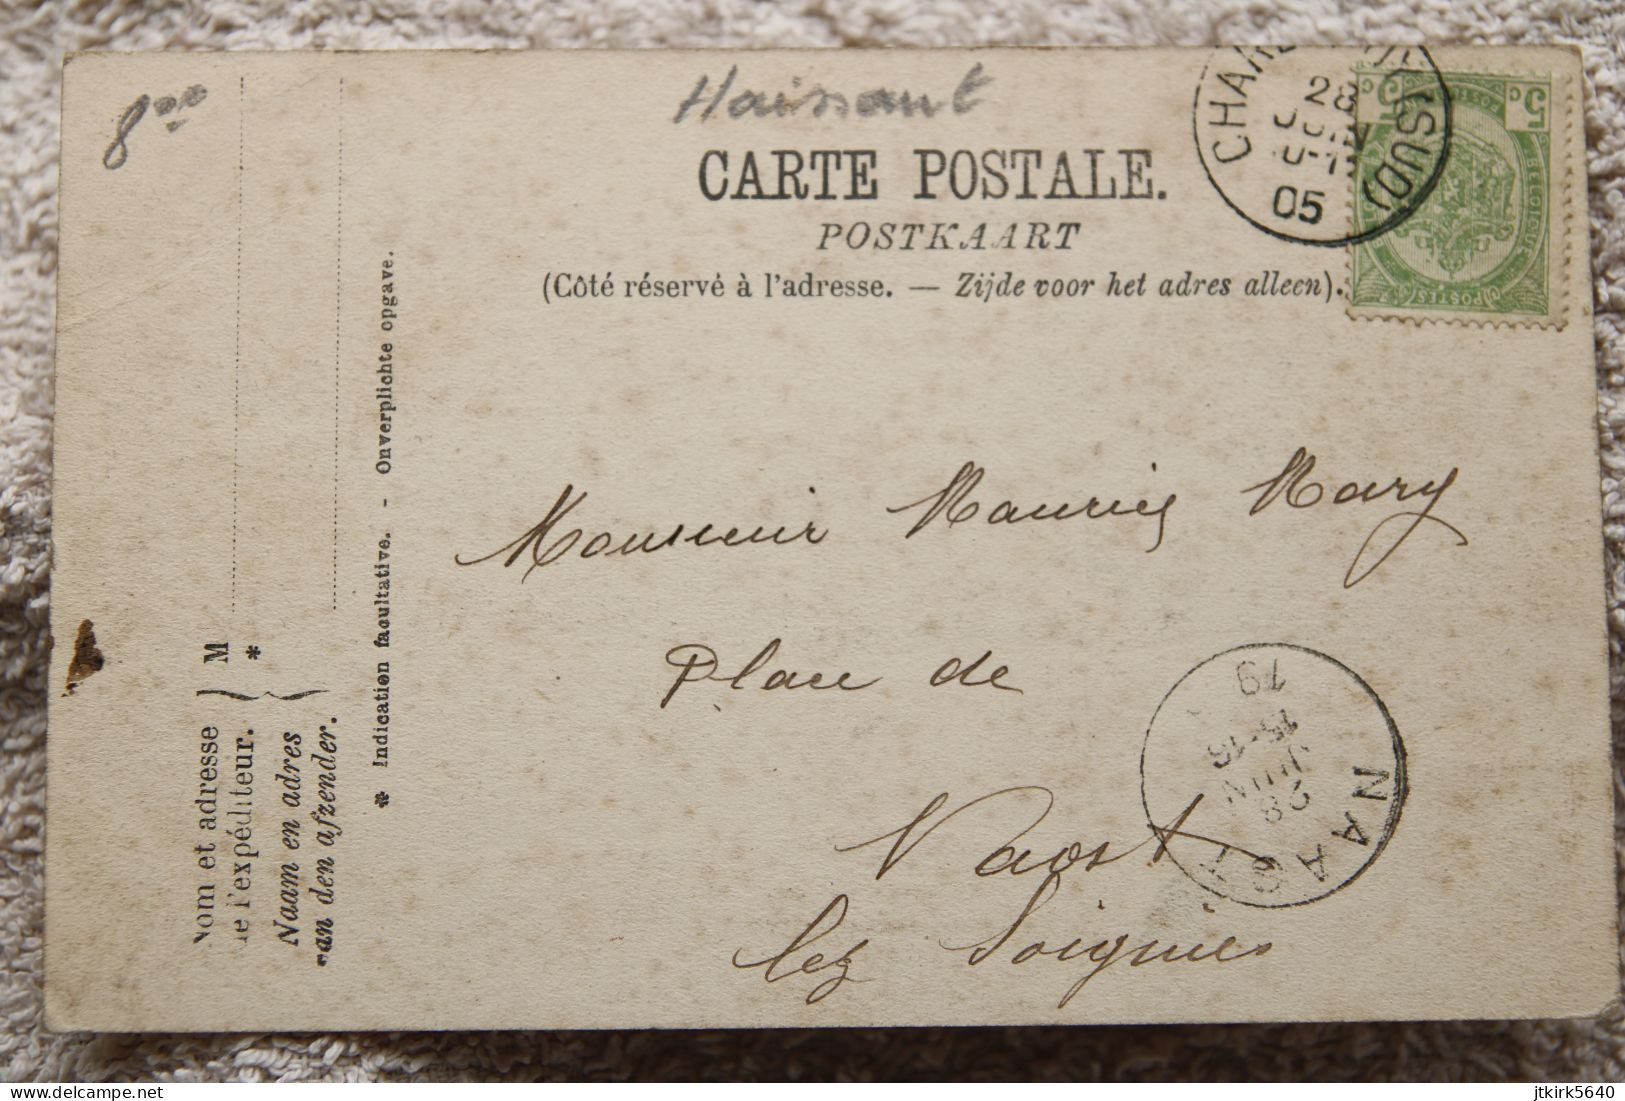 8
Hainaut
CARTE POSTALE.
POSTKAART
(Côté réservé à l'adresse. — Zijde voor het adres alleen).
28
JUIN
05
(SUD)
5 c 5 c
BELGIQUE
POSTES
Monsieur Maurice Mary
Place de
Naast
lez Soignies
NAAST
28
JUIN
15-16
19
Nom et adresse
de l'expéditeur.
Naam en adres
van den afzender.
M
*
* Indication facultative. - Onverplichte opgave.
jtkirk5640